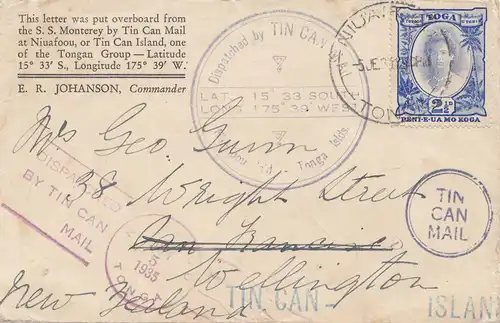 This letter was put overboard from
the S. S. Monterey by Tin Can Mail
at Niuafoou, or Tin Can Island, one
of the Tongan Group — Latitude
15° 33' S., Longitude 175° 39' W.
E. R. JOHANSON, Commander
Dispatched by TIN CAN MAIL
LAT. 15° 33 SOUTH
LONG 175° 39' WEST
Tonga Islds.
TOGA
2½D
PENI-E-UA MO KOGA
Mrs Geo. Gunn
38 Wright Street
San Francisco
Wellington
New Zealand
DISPATCHED
BY TIN CAN
MAIL
5
1935
TIN
CAN
MAIL
TIN CAN – ISLAND